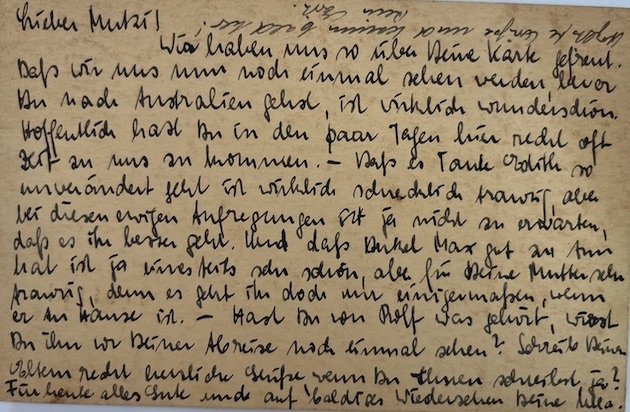 Lieber Mutzi!
Wir haben uns so über Deine Karte gefreut.
Daß wir uns nun noch einmal sehen werden, bevor
Du nach Australien gehst, ist wirklich wunderschön.
Hoffentlich hast Du in den paar Tagen hier recht oft
Zeit zu uns zu kommen. – Daß es Tante Edith so
unverändert geht ist wirklich schrecklich traurig, aber
bei diesen ewigen Aufregungen ist ja nicht zu erwarten,
daß es ihr besser geht. Und daß Onkel Max gut zu tun
hat ist ja einesteils sehr schön, aber für Deine Mutter sehr
traurig, denn es geht ihr doch nur einigermaßen, wenn
er zu Hause ist. – Hast Du von Rolf was gehört, wirst
Du ihn vor Deiner Abreise noch einmal sehen? Schreib Deinen
Eltern recht herzliche Grüße wenn Du Ihnen schreibst, ja?
Für heute alles Gute und auf baldiges Wiedersehen Deine
Grüße und
Dein